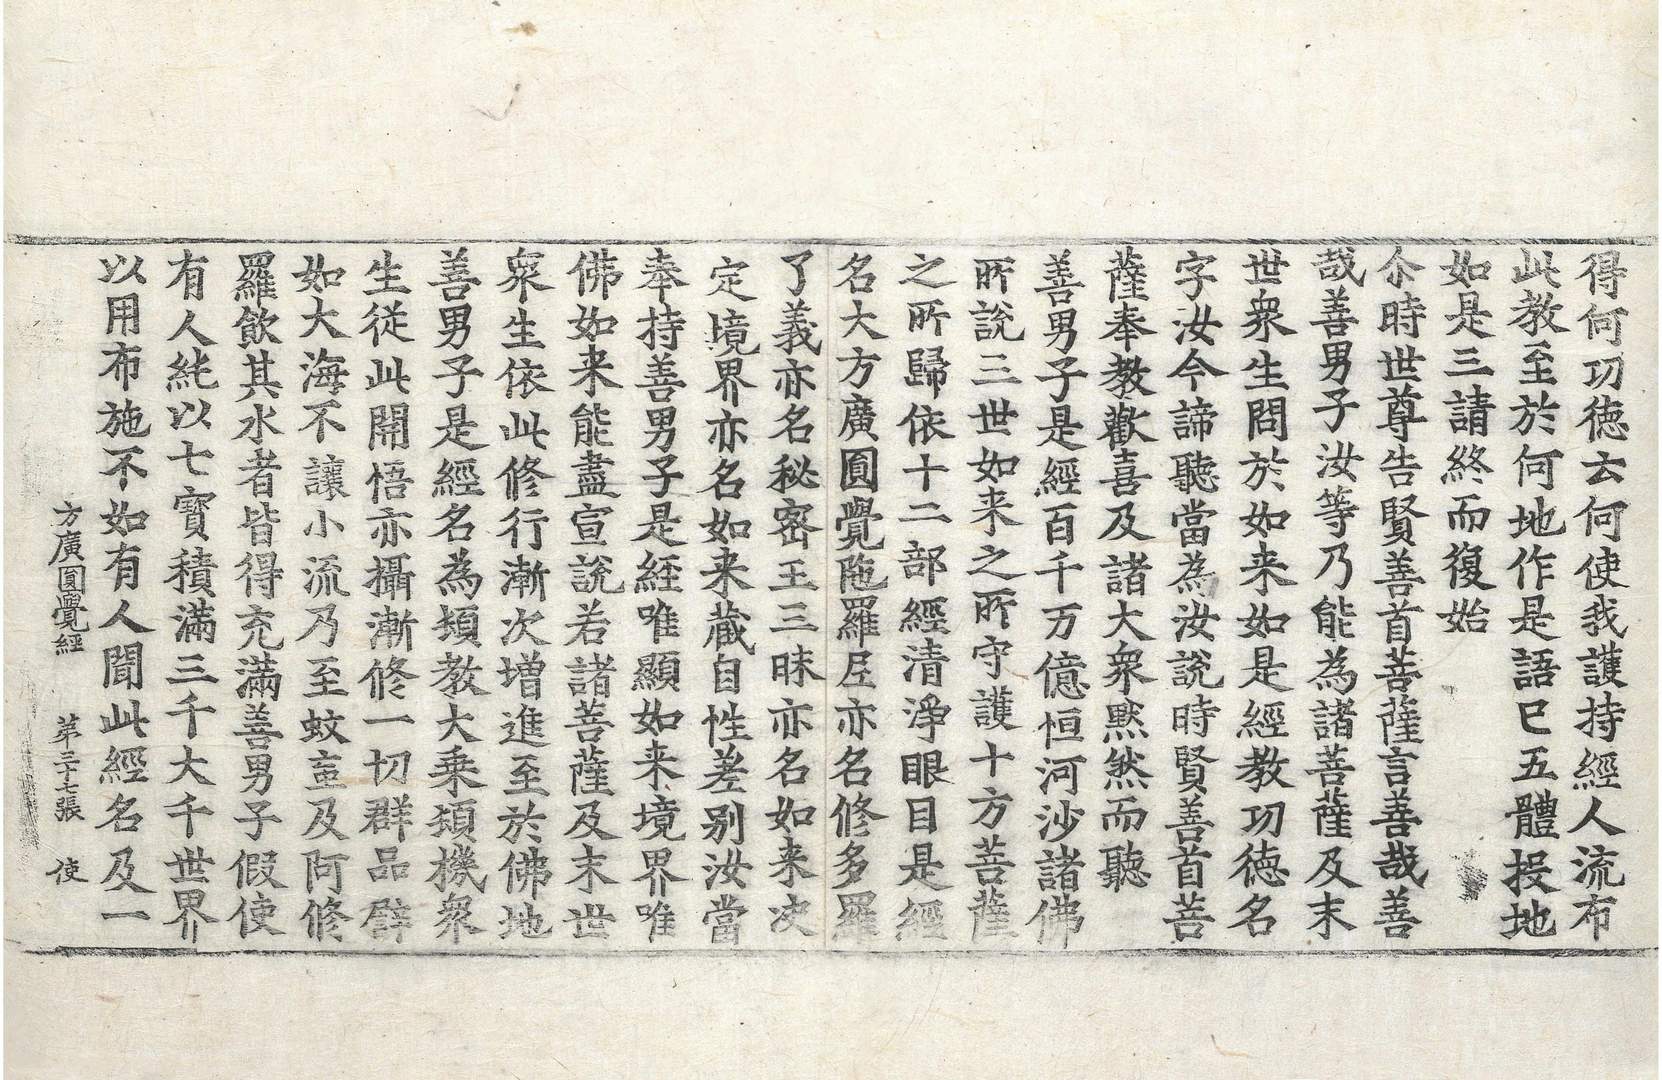 得何功徳云何使我護持經人流布
此教至於何地作是語巳五體投地
如是三請終而復始
尒時世尊告賢善首菩薩言善哉善
哉善男子汝等乃能為諸菩薩及末
世衆生問於如来如是經教功徳名
字汝今諦聽當為汝說時賢善首菩
薩奉教歡喜及諸大衆黙然而聽
善男子是經百千万億恒河沙諸佛
所說三世如来之所守護十方菩薩
之所歸依十二部經清淨眼目是經
名大方廣圎覺陁羅尼亦名修多羅
了義亦名秘密王三昧亦名如来决
定境界亦名如来藏自性差别汝當
奉持善男子是経唯顯如来境界唯
佛如来能盡宣說若諸菩薩及末世
衆生依此修行漸次增進至於佛地
善男子是經名為頓教大乗頓機衆
生從此開悟亦攝漸修一切群品譬
如大海不讓小流乃至蚊䖟及阿修
羅飲其水者皆得充滿善男子假使
有人純以七寶積滿三千大千世界
以用布施不如有人聞此經名及一
方廣圎覺經 苐三十七張 使